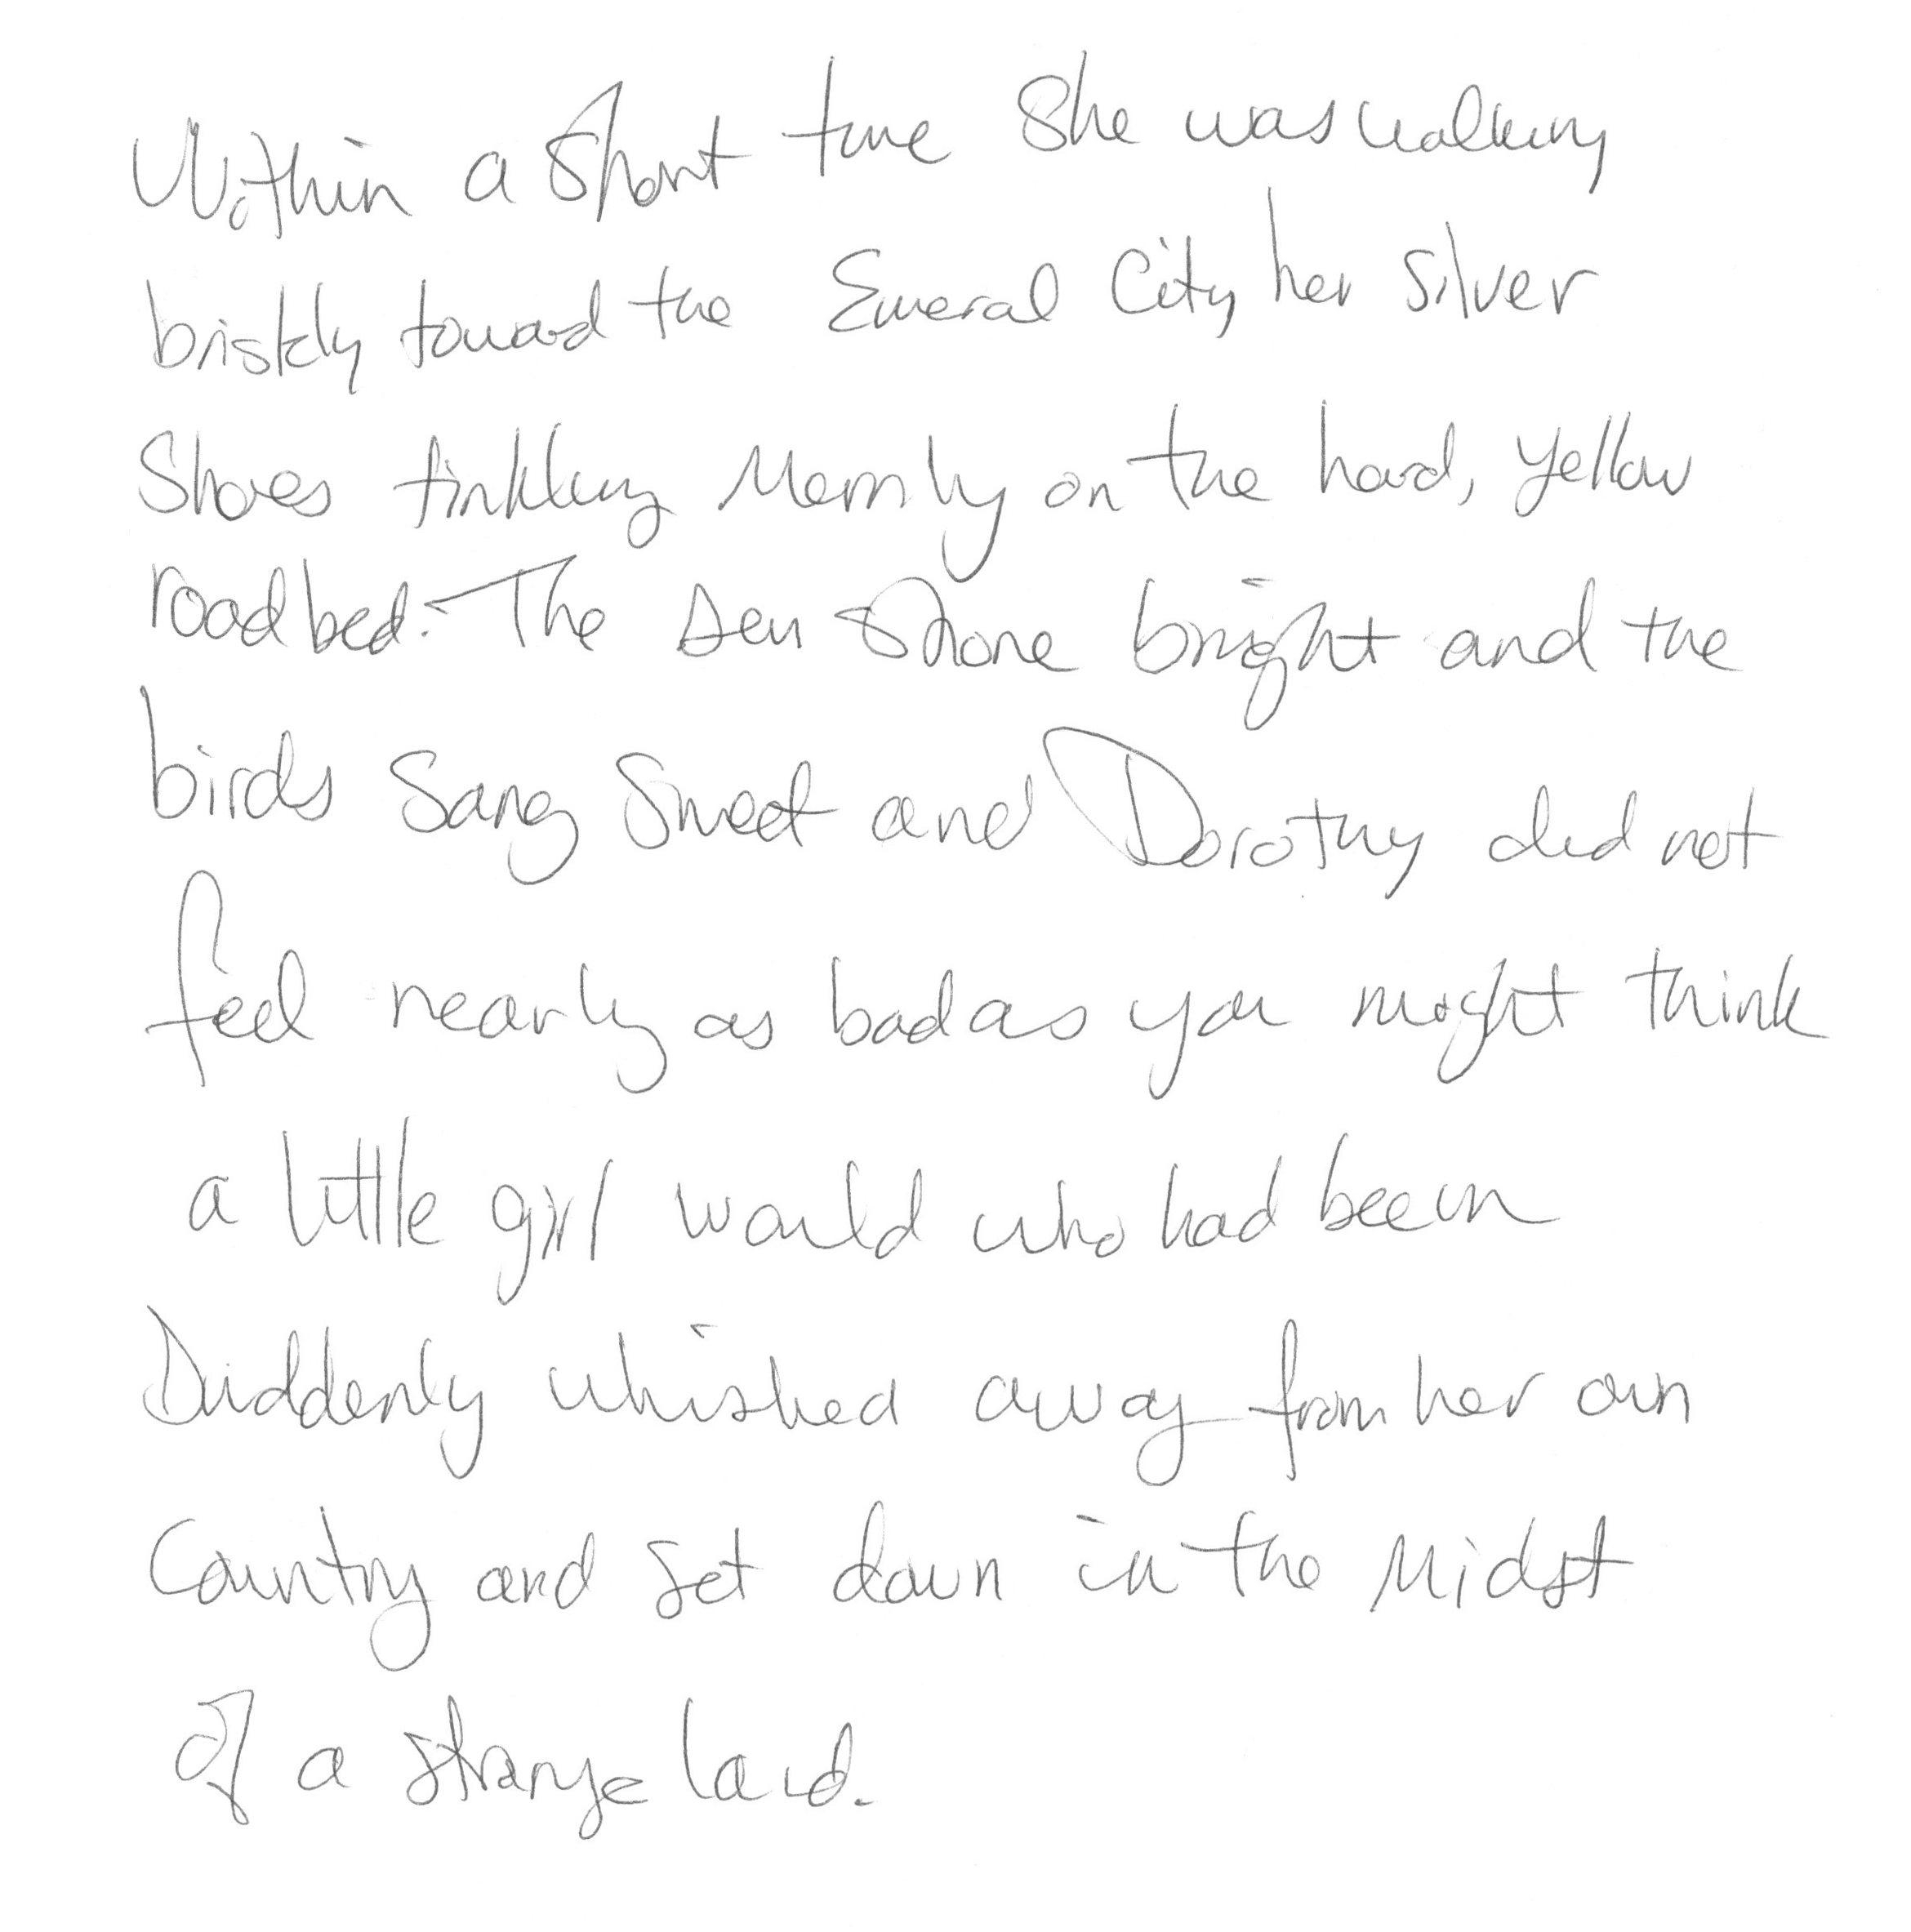 Within a short time she was walking
briskly toward the Emeral City, her silver
Shoes tinkling Merrily on the hard, yellow
roadbed. The sun shone bright and the
birds sang sweet and Dorothy did not
feel nearly as bad as you might think
a little girl would who had been
Suddenly whished away from her own
Country and set down in the Midst
of a strange land.